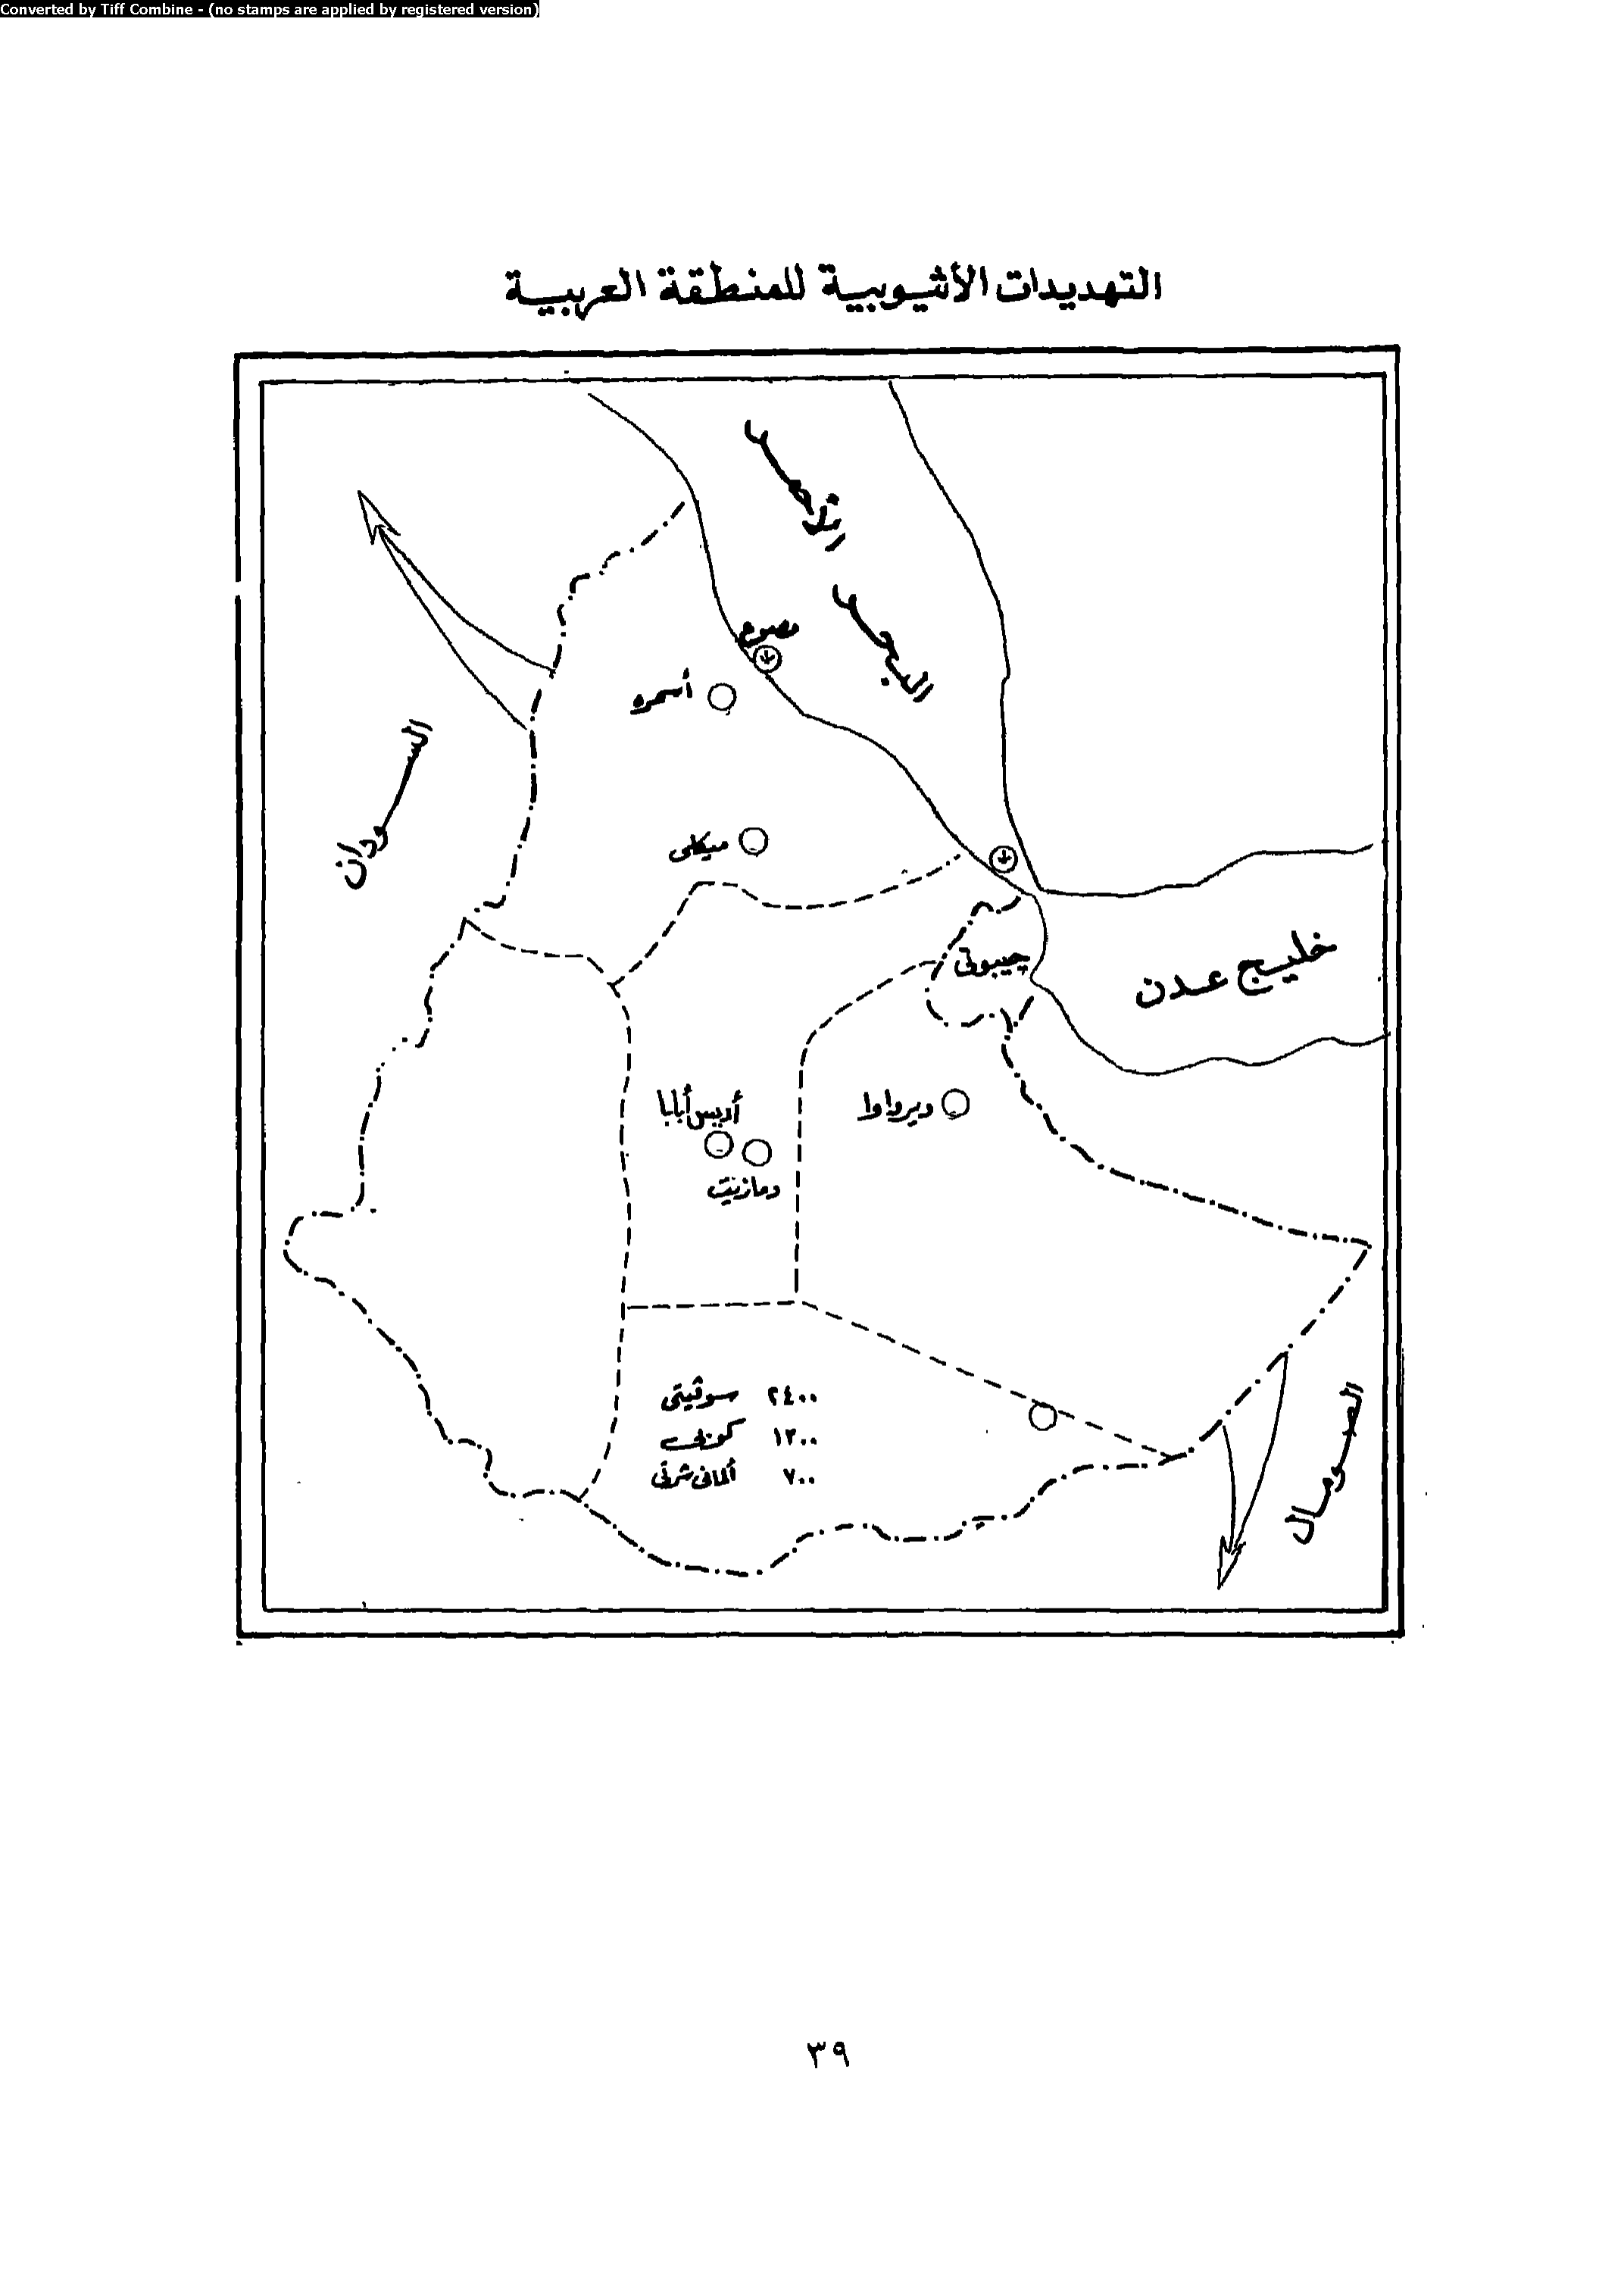 Converted by Tiff Combine - (no stamps are applied by registered version)
التهديدات الأثيوبية للمنطقة العربية
البحر الأحمر
مصوع
أسمره
السودان
ميكلى
جيبوتى
خليج عدن
أديس أبابا
ديرداوا
٢٤٠٠ سوڤيتى
١٣٠٠ كوبى
٧٠٠ ألمانى شرقى
الصومال
٣٩